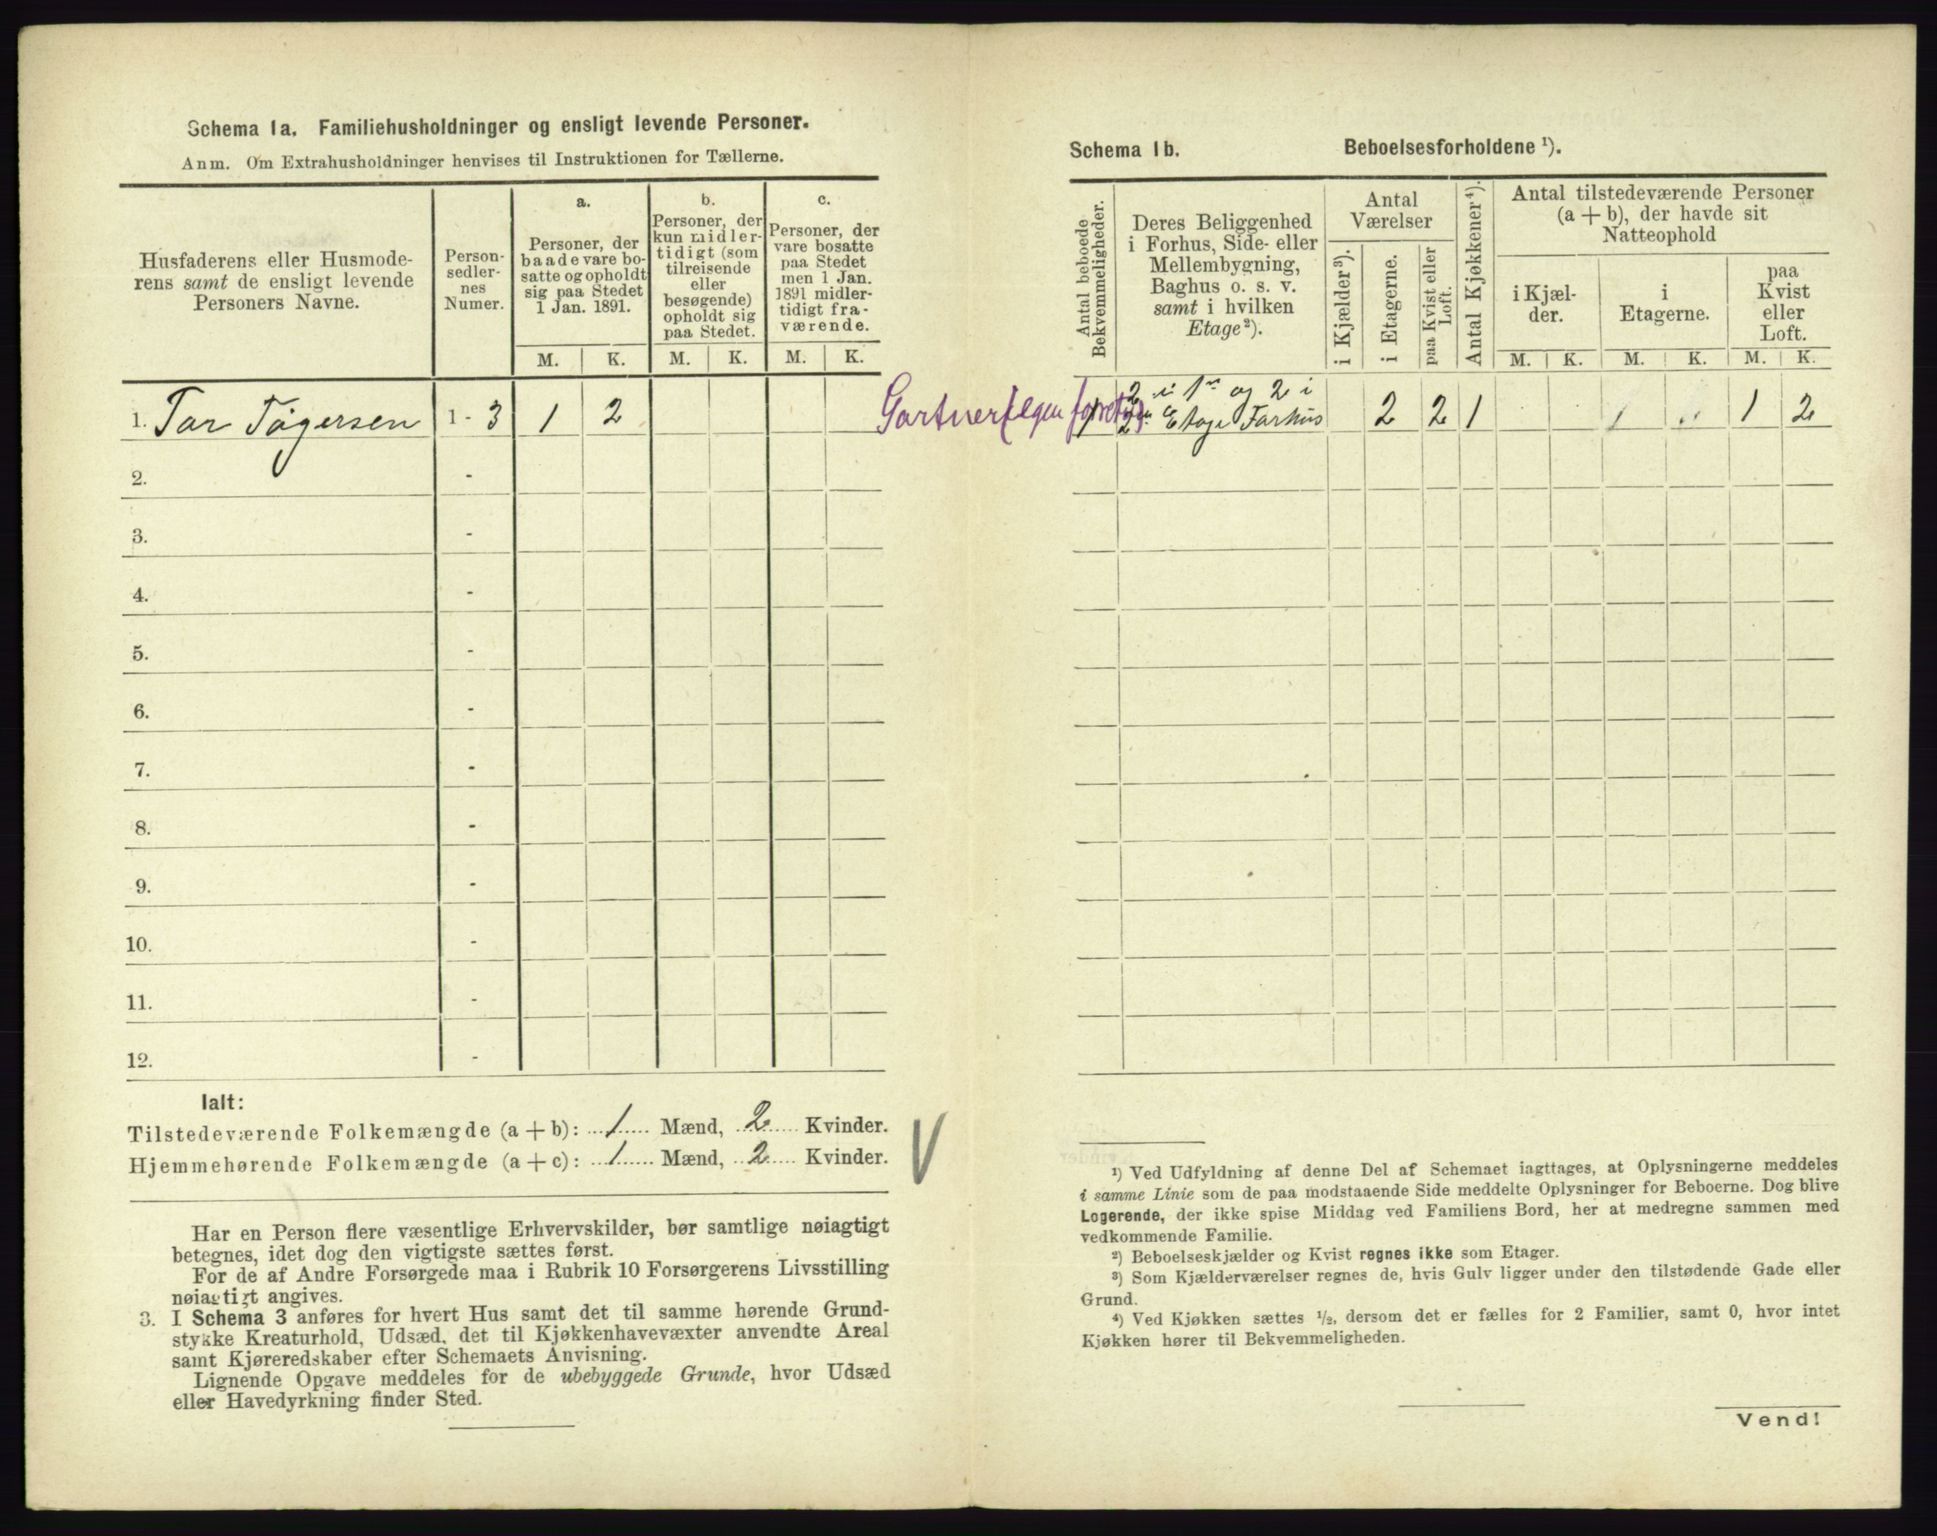 Schema 1a. Familiehusholdninger og ensligt levende Personer.
Anm. Om Extrahusholdninger henvises til Instruktionen for Tællerne.
Husfaderens eller Husmode-
rens samt de ensligt levende
Personers Navne.
Person-
sedler-
nes
Numer.
a.
Personer, der
baade vare bo-
satte og opholdt
sig paa Stedet
1 Jan. 1891.
b.
Personer, der
kun midler-
tidigt (som
tilreisende
eller
besøgende)
opholdt sig
paa Stedet.
c.
Personer, der
vare bosatte
paa Stedet
men 1 Jan.
1891 midler-
tidigt fra-
værende.
M. K. M. K. M. K.
1. Tor Tögersen 1 - 3 1 2
2. -
3. -
4. -
5. -
6. -
7. -
8. -
9. -
10. -
11. -
12. -
Ialt:
Tilstedeværende Folkemængde (a + b): 1 Mænd, 2 Kvinder.
Hjemmehørende Folkemængde (a + c): 1 Mænd, 2 Kvinder.
Har en Person flere væsentlige Erhvervskilder, bør samtlige nøiagtigt
betegnes, idet dog den vigtigste sættes først.
For de af Andre Forsørgede maa i Rubrik 10 Forsørgerens Livsstilling
nøiagtigt angives.
3. I Schema 3 anføres for hvert Hus samt det til samme hørende Grund-
stykke Kreaturhold, Udsæd, det til Kjøkkenhavevæxter anvendte Areal
samt Kjøreredskaber efter Schemaets Anvisning.
Lignende Opgave meddeles for de ubebyggede Grunde, hvor Udsæd
eller Havedyrkning finder Sted.
Schema 1b. Beboelsesforholdene ¹).
Antal beboede
Bekvemmeligheder.
Deres Beliggenhed
i Forhus, Side- eller
Mellembygning,
Baghus o. s. v.
samt i hvilken
Etage²).
Antal
Værelser
i Kjælder³).
i Etagerne.
paa Kvist eller
Loft.
Antal Kjøkkener⁴).
Antal tilstedeværende Personer
(a + b), der havde sit
Natteophold
i Kjæl-
der.
i
Etagerne.
paa
Kvist
eller
Loft.
M. K. M. K. M. K.
2 i 1ste og 2 i
Gartner 1 2den Etage Forhus 2 2 1 1 2
¹) Ved Udfyldning af denne Del af Schemaet iagttages, at Oplysningerne meddeles
i samme Linie som de paa modstaaende Side meddelte Oplysninger for Beboerne. Dog blive
Logerende, der ikke spise Middag ved Familiens Bord, her at medregne sammen med
vedkommende Familie.
²) Beboelseskjælder og Kvist regnes ikke som Etager.
³) Som Kjælderværelser regnes de, hvis Gulv ligger under den tilstødende Gade eller
Grund.
⁴) Ved Kjøkken sættes ¹/₂, dersom det er fælles for 2 Familier, samt 0, hvor intet
Kjøkken hører til Bekvemmeligheden.
Vend!